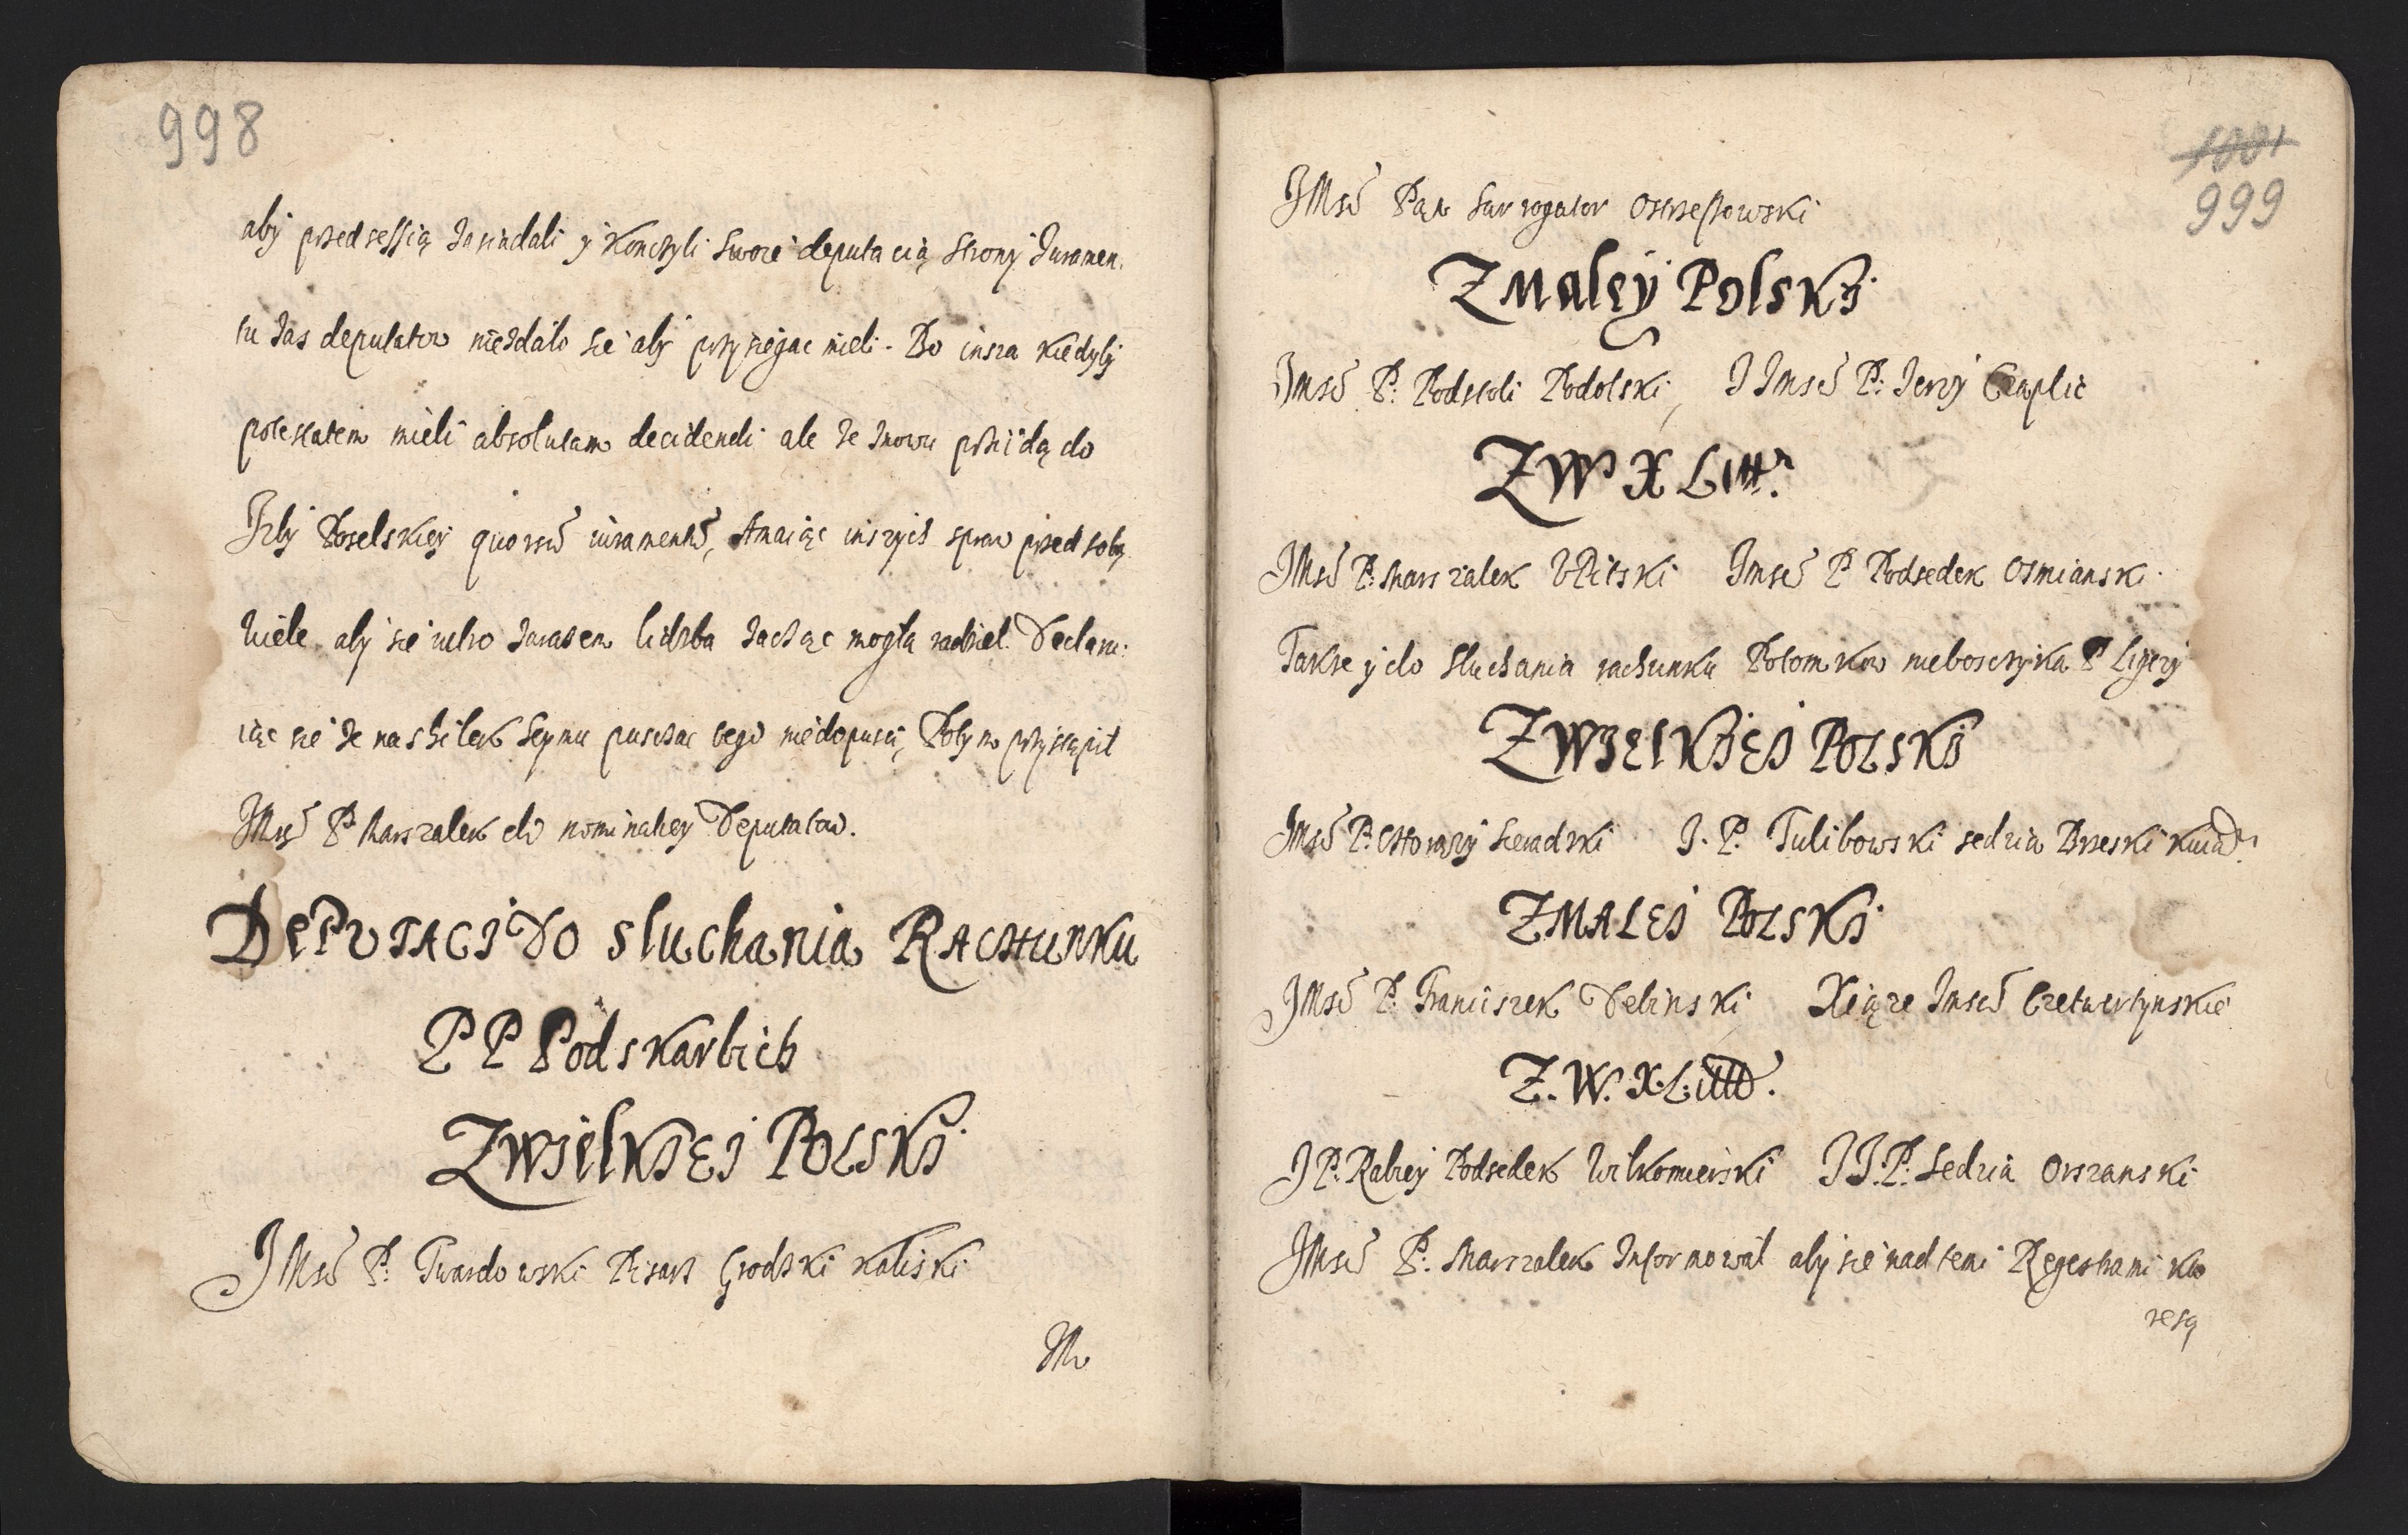 998
aby przed sessią zasiadali y konczyli swoię deputacią strony Juramen.
tu zas deputatow niezdało się aby przysięgac mieli. Bo insza kiedyby
potestatem mieli absolutam decidendi ale że znowu przyidą do
Izby Poselskiey quorsu iuramentu, A maiąc inszych spraw przed sobą
wiele aby się iutro zarazem liczba zacząc mogła radził. Declaru:
iąc się że na schiłek Seymu puszczac tego niedopusci, Potym przystąpił
JMsc P Marszałek do nominatiey Deputatow.
DEPUTACI DO Sluchania RACHUNKU
P P Podskarbich
Z WIELKIEJ POLSKI
JMsc P: Twardowski Pisarz Grodzki Kaliski
JM
1001
999
JMsc Pan Surrogator Ostrzeszowski
Z Małey POLSKI
Jmsc P: Podstoli Podolski, J Jmsc P: Jerzy Czaplic
Z W X Litt.
JMsc P: Marszałek Upitski Jmsc P Podsedek Osmianski.
Takze y do słuchania rachunku Potomkow nieboszczyka P Ligęzy
Z WIELKIEJ POLSKI
JMsc P: Chorązy Sieradzki J. P. Tulibowski sedzia Brzeski Kuia:
Z MALEJ POLSKI
JMsc P: Franciszek Debinski Xiąze Jmsc Czetwertynskie
Z. W. X. L: itto.
J P: Podsedek Wilkomierski J J. P: Sedzia Orszanski
JMsc P: Marszałek Informował aby się nad temi Regestrami kto
re są